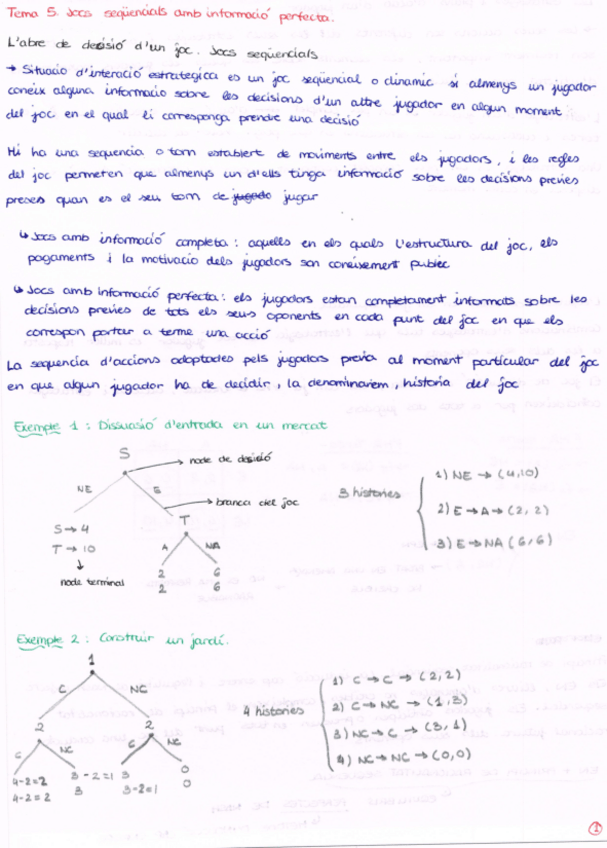 Tema 5. Jocs seqüencials amb informació perfecta.
L'abre de decisió d'un joc. Jocs seqüencials
→ Situacio d'interació estrategicca es un joc seqüencial o dinamic si almenys un jugador
coneix alguna informacio sobre les decisions d'un altre jugador en algun moment
del joc en el qual li correspongа prendre una decisió
Hi ha una sequencia o torn establert de moviments entre els jugadors, i les regles
del joc permeten que almenys un d'ells tinga informació sobre les decisions previes
preses quan es el seu torn de jugado jugar
↳ Jocs amb informació completa: aquells en els quals l'estructura del joc, els
pagaments i la motivacio dels jugadors son coneixement public
↳ Jocs amb informació perfecta: els jugadors estan completament informats sobre les
decisions previes de tots els seus oponents en cada punt del joc en que els
correspon portar a terme una acció
La sequencia d'accions adoptades pels jugadors previa al moment particular del joc
en que algun jugador ha de decidir, la denominarem, historia del joc
Exemple 1: Dissuasió d'entrada en un mercat
S
→ node de desició
NE E
→ branca del joc
S → 4
T → 10
↓
node terminal
T
A NA
2 6
2 6
3 histories
1) NE → (4,10)
2) E → A → (2,2)
3) E → NA (6,6)
Exemple 2: Construir un jardí.
1
C NC
2 2
C NC C NC
4-2=2 3-2=1 3 0
4-2=2 3 3-2=1 0
4 histories
1) C → C → (2,2)
2) C → NC → (1,3)
3) NC → C → (3,1)
4) NC → NC → (0,0)
1